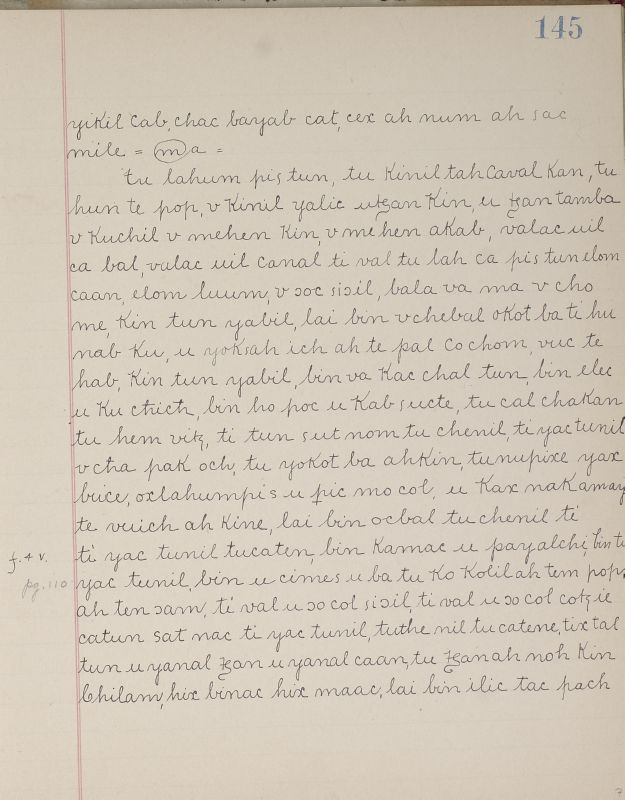 145
yikil Cab, chac bayab cat, cex ah num ah sac
mile = ma =
tu lahum pis tun, tu Kinil tah Caval Kan, tu
hun te pop, v Kinil yalic utzan Kin, u tzan tamba
v Kuchil v mehen Kin, v mehen aKab, valac uil
ca bal, valac uil canal ti val tu lah ca pis tun elom
caan, elom luum, v ɔoc siɔil, bala va ma v cho
me, Kin tun yabil, lai bin v chebal oKot ba ti hu
nab Ku, u yoksah ich ah te pal co chom, vuc te
hab, Kin tun yabil, bin va Kac chal tun, bin elec
u Ku chich, bin ho poc u Kab sucte, tu cal chaKan
tu hem vitz, ti tun sut nom tu chenil, ti yac tunil
v cha pak och, tu yoKot ba ahKin, tu nupixe yax
brice, oxlahumpis u pic mo col, u Kax naKamay
te vuich ah Kine, lai bin ocbal tu chenil ti
f. 4 v. ti yac tunil tucaten, bin Kamac u payalchi, bin ti
pg. 110 yac tunil, bin u cimes u ba tu Ko Kolil ah tem pop,
ah ten ɔam, ti val u ɔo col siɔil, ti val u ɔo col cotz ie
catun sat nac ti yac tunil, tuthe nil tu catene, tix tal
tun u yanal tzan u yanal caan, tu tzan ah noh Kin
Chilam, hix binac hix maac, lai bin ilic tac pach